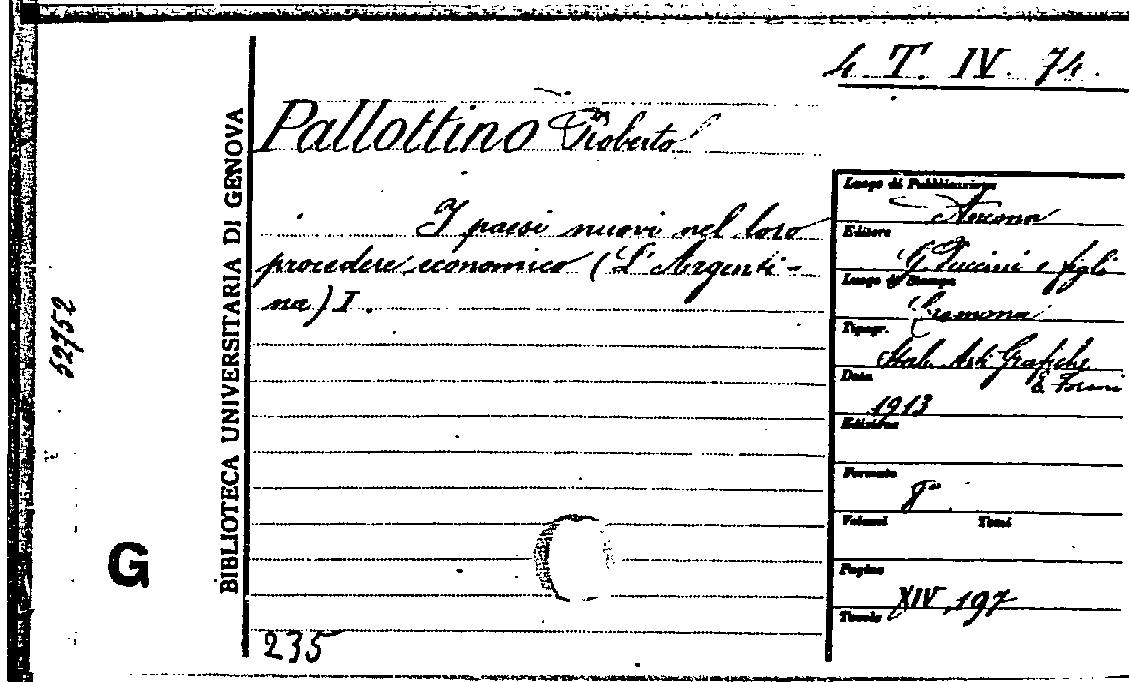 4. T. IV. 74.
Pallottino Roberto
I paesi nuovi nel loro
procedere economico (L'Argenti-
na) I.
235
BIBLIOTECA UNIVERSITARIA DI GENOVA
52752
G
Luogo di Pubblicazione
Ancona
Editore
G. Puccini e figli
Luogo di Stampa
Cremona
Tipogr.
Stab. Arti Grafiche
E. Foroni
Data
1913
Edizione
Formato
8°
Volumi Tomi
Pagine
XIV, 197
Tavole